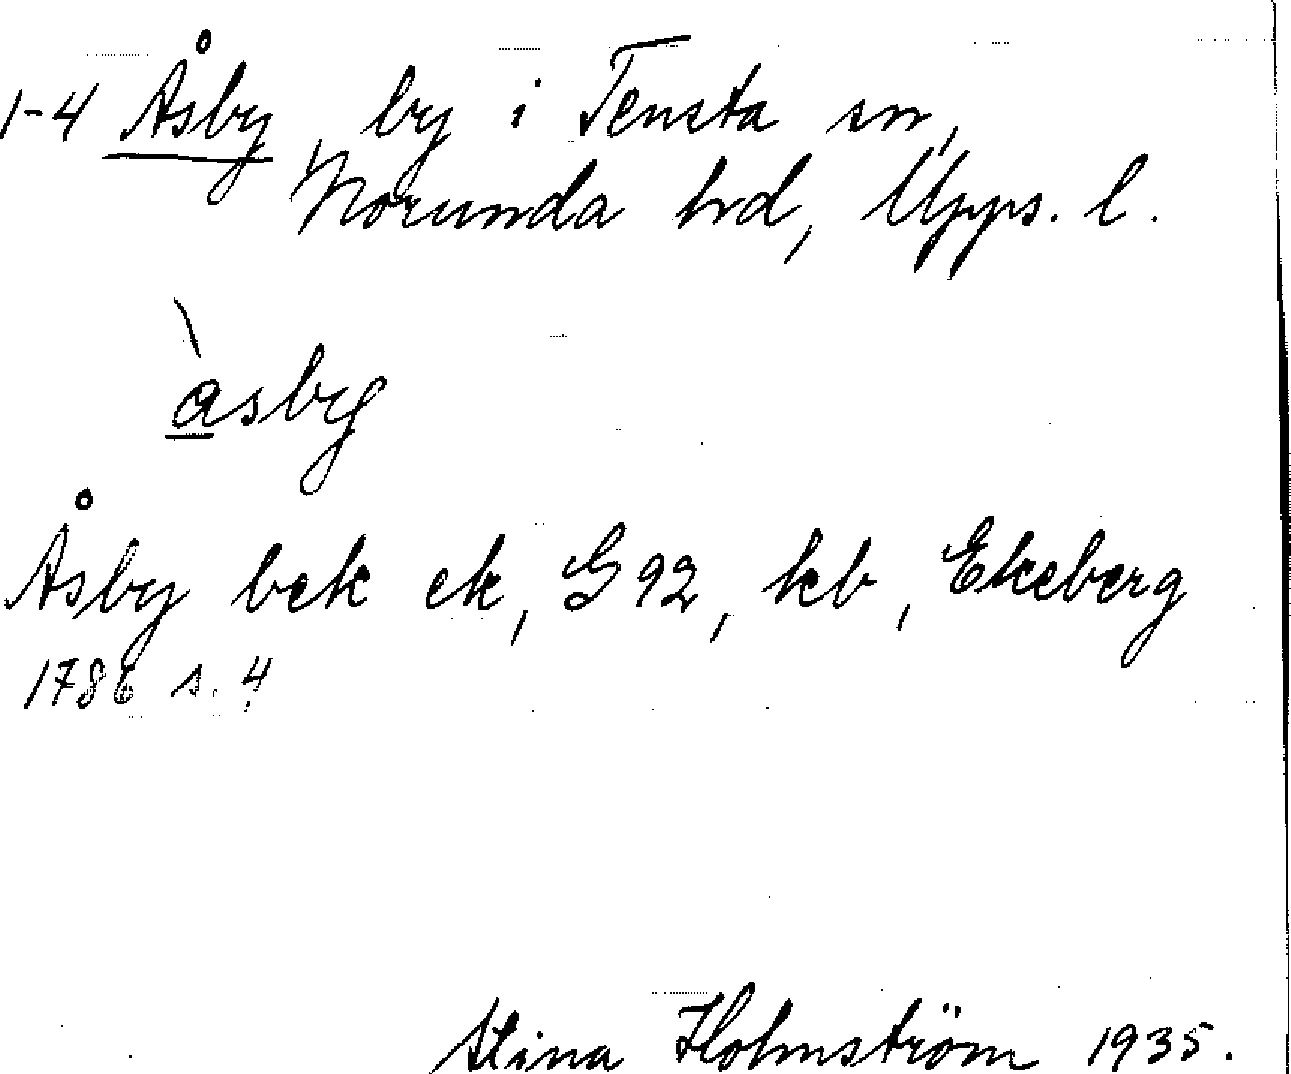 1-4 Åsby, by i Tensta sn,
Norunda hd, Upps. l.
àsby
Åsby bek ek, G 92, kb, Ekeberg
1786 s. 4
Stina Holmström 1935.